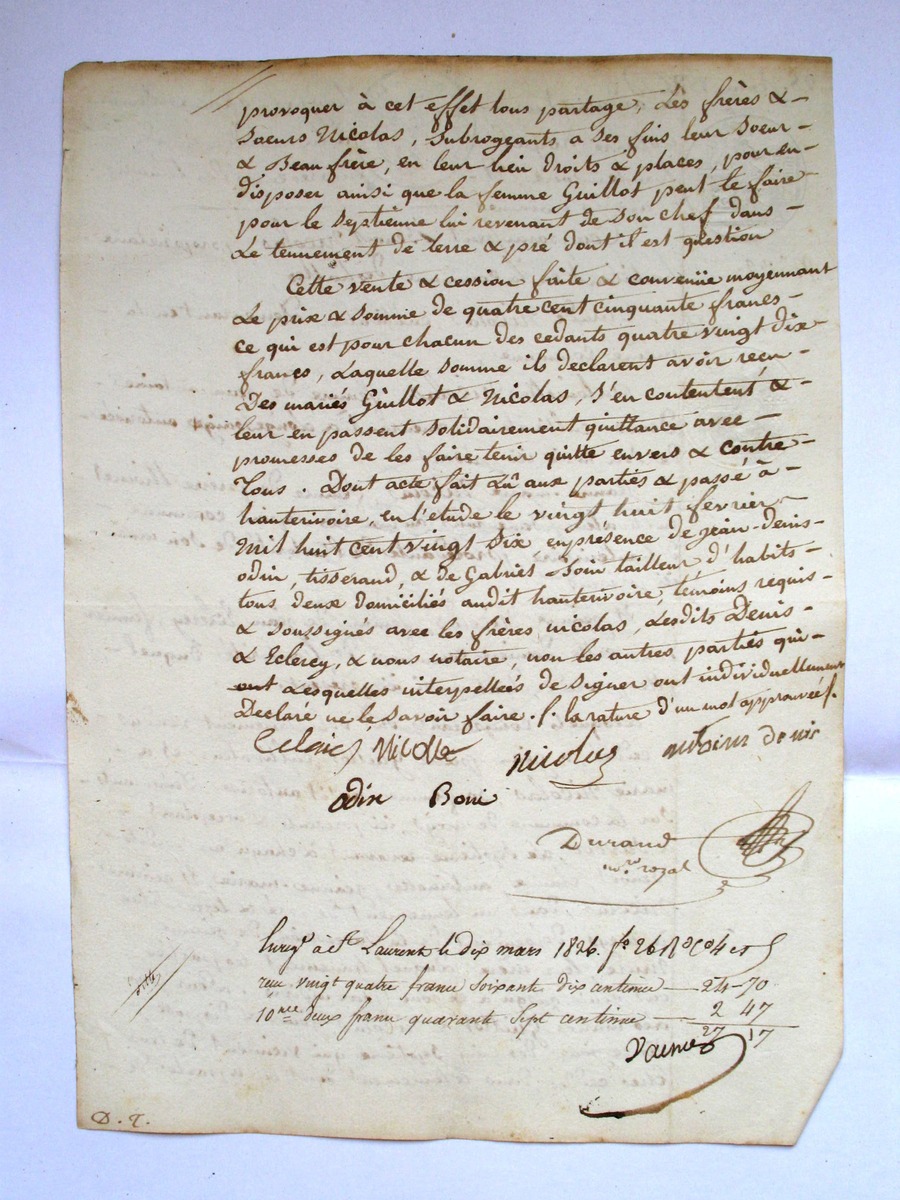 provoquer à cet effet tous partage, Les frères &
Soeurs Nicolas, Subrogeants a ses fins leur Soeur
& Beau frère, en leur lieu droits & places, pour en
disposer ainsi que la femme Guillot peut le faire
pour le Septienne lui revenant de Son chef dans
Le tennement de terre & pré dont il est question
Cette vente & cession faite & convenüe moyennant
Le prix & Somme de quatre cent cinquante francs
ce qui est pour chacun des cedants quatre vingt dix
francs, Laquelle Somme ils declarent avoir reçu
Des mariés Guillot & Nicolas, S'en contentent &
leur en passent Solidairement quittance avec
promesses de les faire tenir quitte envers & contre
Tous. Dont acte fait Lû aux parties & passé à
hauterivoire, en l'étude le vingt huit fevrier
Mil huit cent vingt Six, en présence de jean-denis
odin, tisserand, & de Gabriel tailleur d'habits
tous deux domiciliés audit hauterivoire, témoins requis
& Soussignés avec les frères nicolas, Lesdits Denis
& Eclercy, & nous notaire, non les autres parties qui
ont Lesquelles interpellées de Signer ont individuellement
Declaré ne le Savoir faire. /. la rature d'un mot approuvée /.
Nicolas
odin
Durand
no.re royal
Enreg.º à S.t Laurent le dix mars 1826. f.º 26 R.º C.º 4 et 5
reçu vingt quatre francs Soixante dix centimes — 24-70
10.me deux francs quarante Sept centimes — 2 47
27 17
D. T.